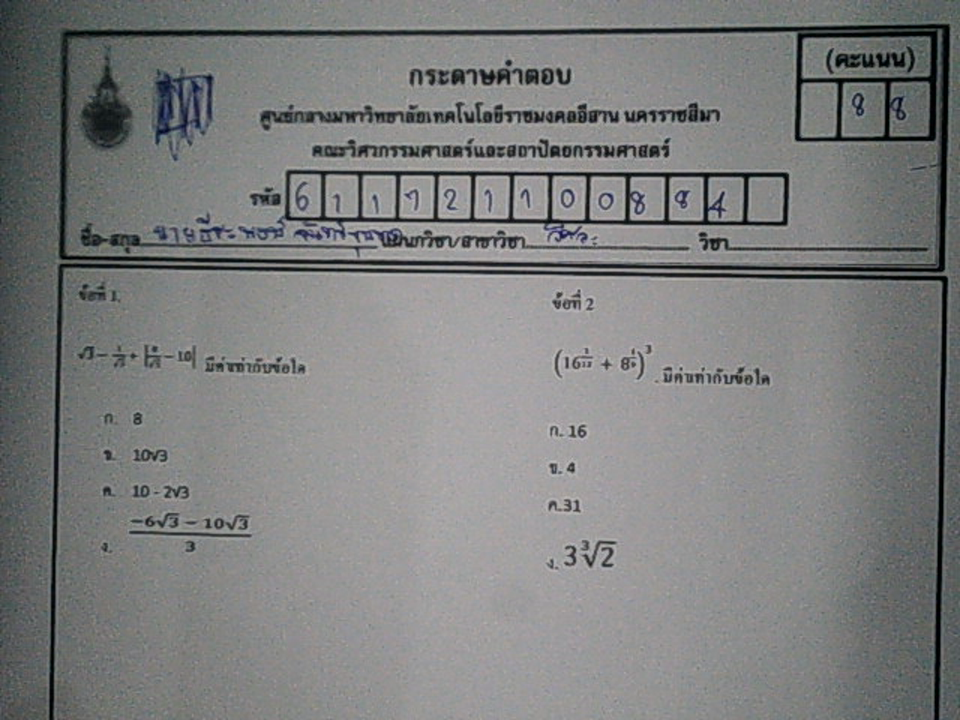 (คะแนน)
8 8
กระดาษคำตอบ
ศูนย์กลางมหาวิทยาลัยเทคโนโลยีราชมงคลอีสาน นครราชสีมา
คณะวิศวกรรมศาสตร์และสถาปัตยกรรมศาสตร์
รหัส 6 1 1 7 2 1 1 0 0 8 8 4
ชื่อ-สกุล นาย แผนกวิชา/สาขาวิชา วิศวะ วิชา
ข้อที่ 1.
มีค่าเท่ากับข้อใด
ก. 8
ข. 10√3
ค. 10 - 2√3
ง. (−6√3 − 10√3)/3
ข้อที่ 2
มีค่าเท่ากับข้อใด
ก. 16
ข. 4
ค.31
ง. 3∛2